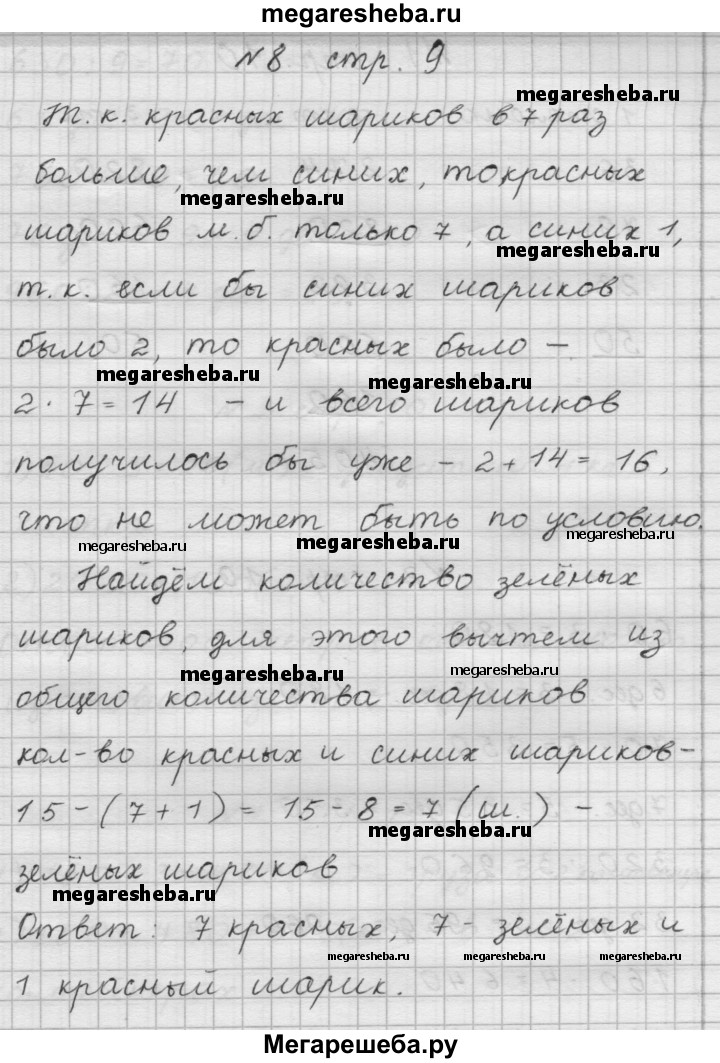 megaresheba.ru
№8 стр. 9
megaresheba.ru
Т.к. красных шариков в 7 раз
больше, чем синих, то красных
megaresheba.ru
шариков м.б. только 7, а синих 1,
megaresheba.ru
т.к. если бы синих шариков
было 2, то красных было –
megaresheba.ru megaresheba.ru
2·7=14 – и всего шариков
получилось бы уже – 2+14=16,
что не может быть по условию.
megaresheba.ru megaresheba.ru megaresheba.ru
Найдём количество зелёных
шариков, для этого вычтем из
megaresheba.ru megaresheba.ru
общего количества шариков
кол-во красных и синих шариков–
15–(7+1)=15–8=7(ш.) –
megaresheba.ru
зелёных шариков
megaresheba.ru
Ответ: 7 красных, 7 - зелёных и
megaresheba.ru megaresheba.ru
1 красный шарик.
Мегарешеба.ру